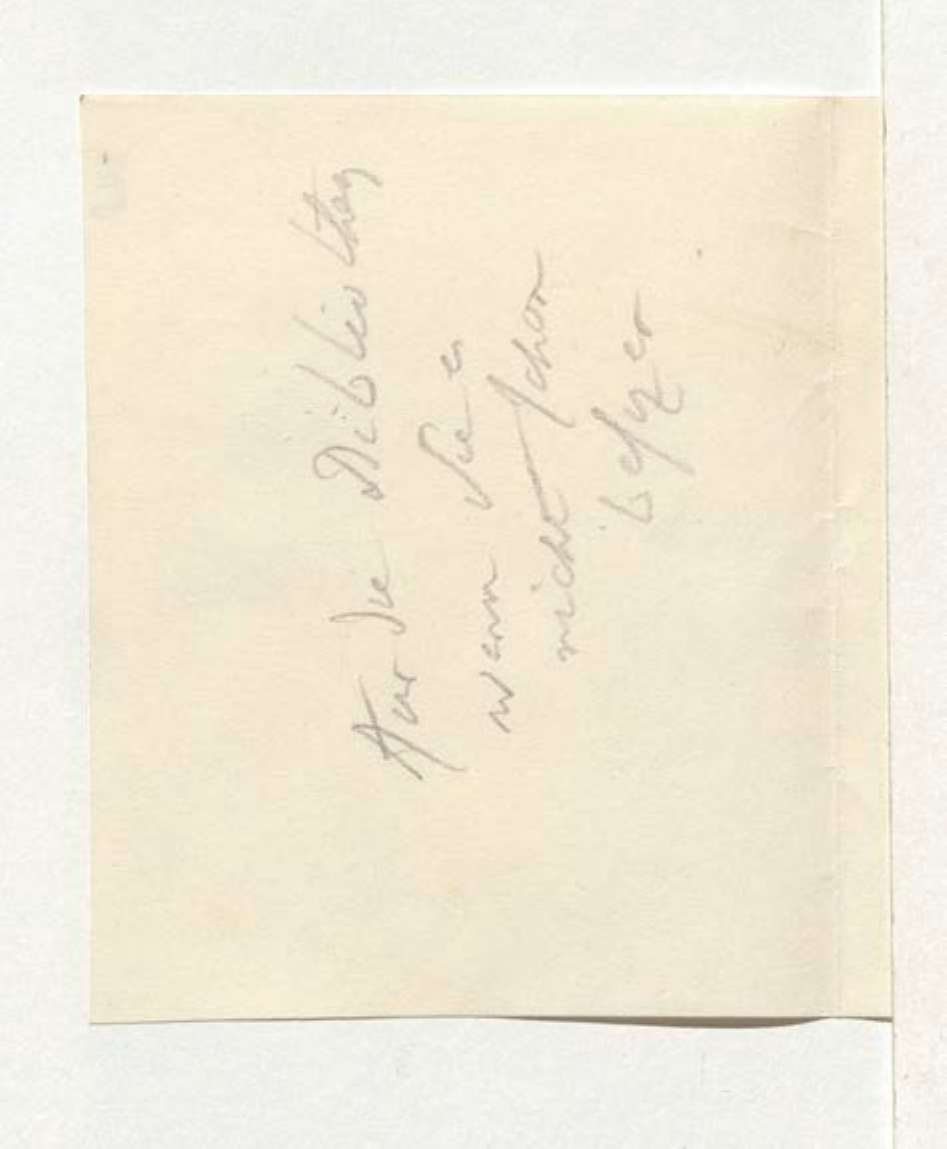 Für die Bibliothek
wenn Sie es
nicht schon
besitzen